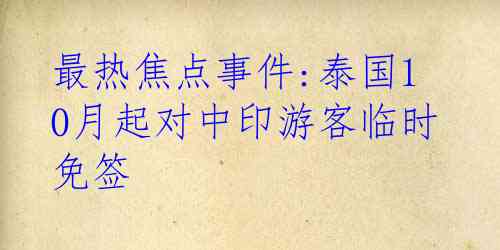 最热焦点事件:泰国1
0月起对中印游客临时
免签